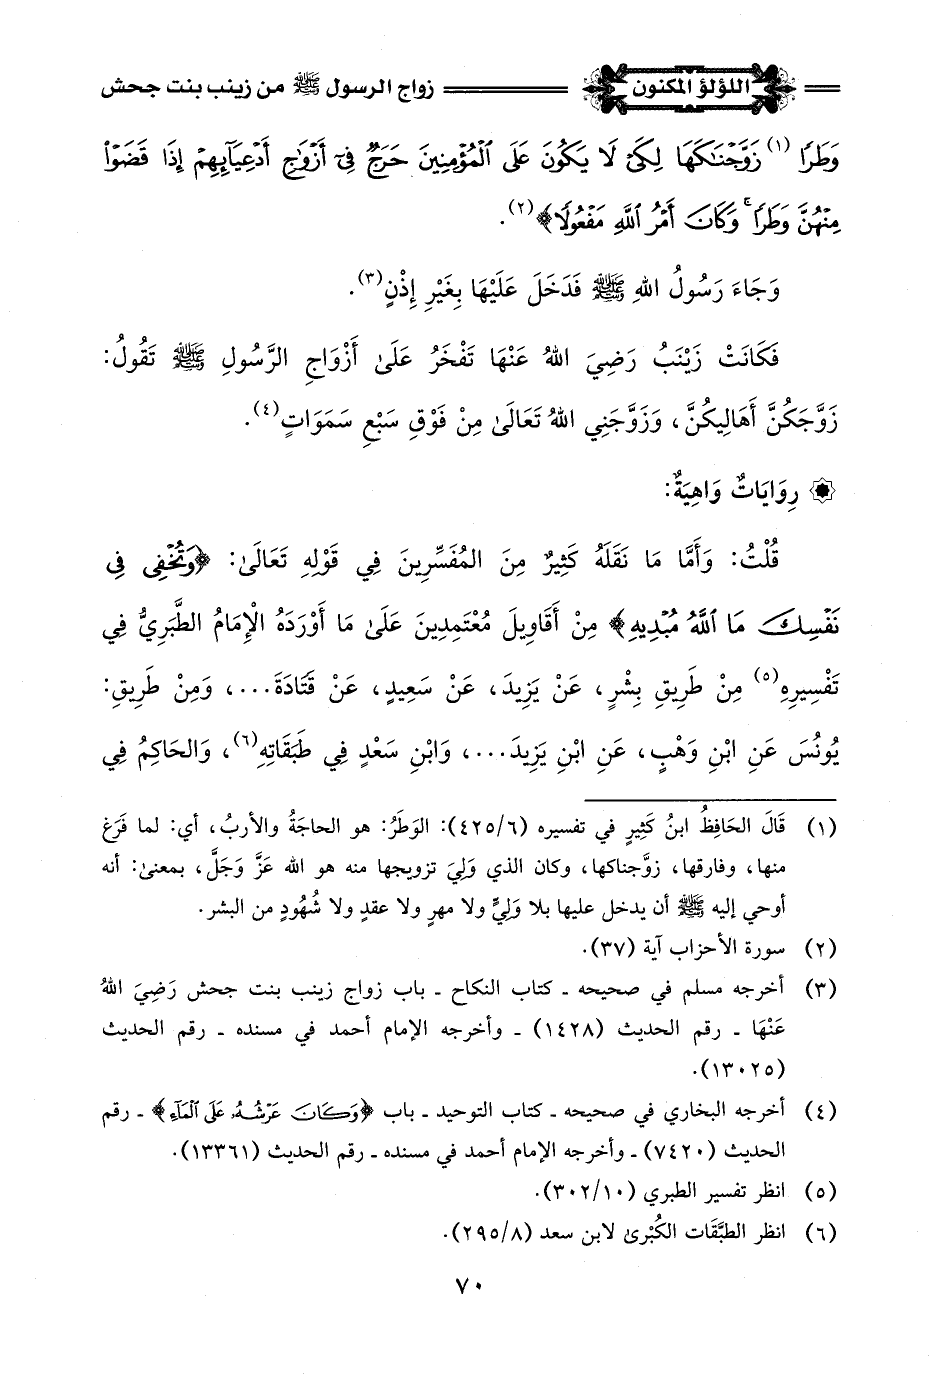 اللؤلؤ المكنون زواج الرسول ﷺ من زينب بنت جحش
وَطَرًا (١) زَوَّجْنَٰكَهَا لِكَىْ لَا يَكُونَ عَلَى ٱلْمُؤْمِنِينَ حَرَجٌ فِىٓ أَزْوَٰجِ أَدْعِيَآئِهِمْ إِذَا قَضَوْا۟
مِنْهُنَّ وَطَرًا ۚ وَكَانَ أَمْرُ ٱللَّهِ مَفْعُولًا﴾(٢).
وَجَاءَ رَسُولُ اللهِ ﷺ فَدَخَلَ عَلَيْهَا بِغَيْرِ إِذْنٍ(٣).
فَكَانَتْ زَيْنَبُ رَضِيَ اللهُ عَنْهَا تَفْخَرُ عَلَىٰ أَزْوَاجِ الرَّسُولِ ﷺ تَقُولُ:
زَوَّجَكُنَّ أَهَالِيكُنَّ، وَزَوَّجَنِي اللهُ تَعَالَىٰ مِنْ فَوْقِ سَبْعِ سَمَوَاتٍ(٤).
۞ رِوَايَاتٌ وَاهِيَةٌ:
قُلْتُ: وَأَمَّا مَا نَقَلَهُ كَثِيرٌ مِنَ المُفَسِّرِينَ فِي قَوْلِهِ تَعَالَىٰ: ﴿وَتُخْفِى فِى
نَفْسِكَ مَا ٱللَّهُ مُبْدِيهِ﴾ مِنْ أَقَاوِيلَ مُعْتَمِدِينَ عَلَىٰ مَا أَوْرَدَهُ الْإِمَامُ الطَّبَرِيُّ فِي
تَفْسِيرِهِ(٥) مِنْ طَرِيقِ بِشْرٍ، عَنْ يَزِيدَ، عَنْ سَعِيدٍ، عَنْ قَتَادَةَ...، وَمِنْ طَرِيقِ:
يُونُسَ عَنِ ابْنِ وَهْبٍ، عَنِ ابْنِ يَزِيدَ...، وَابْنِ سَعْدٍ فِي طَبَقَاتِهِ(٦)، وَالحَاكِمُ فِي
(١) قَالَ الحَافِظُ ابنُ كَثِيرٍ في تفسيره (٤٢٥/٦): الوَطَرُ: هو الحاجَةُ والأربُ، أي: لما فَرَغ
منها، وفارقها، زوَّجناكها، وكان الذي وَلِيَ تزويجها منه هو الله عَزَّ وَجَلَّ، بمعنىٰ: أنه
أوحي إليه ﷺ أن يدخل عليها بلا وَلِيٍّ ولا مهرٍ ولا عقدٍ ولا شُهُودٍ من البشر.
(٢) سورة الأحزاب آية (٣٧).
(٣) أخرجه مسلم في صحيحه ـ كتاب النكاح ـ باب زواج زينب بنت جحش رَضِيَ اللهُ
عَنْهَا ـ رقم الحديث (١٤٢٨) ـ وأخرجه الإمام أحمد في مسنده ـ رقم الحديث
(١٣٠٢٥).
(٤) أخرجه البخاري في صحيحه ـ كتاب التوحيد ـ باب ﴿وَكَانَ عَرْشُهُۥ عَلَى ٱلْمَآءِ﴾ ـ رقم
الحديث (٧٤٢٠) ـ وأخرجه الإمام أحمد في مسنده ـ رقم الحديث (١٣٣٦١).
(٥) انظر تفسير الطبري (٣٠٢/١٠).
(٦) انظر الطبَّقَات الكُبْرىٰ لابن سعد (٢٩٥/٨).
٧٠